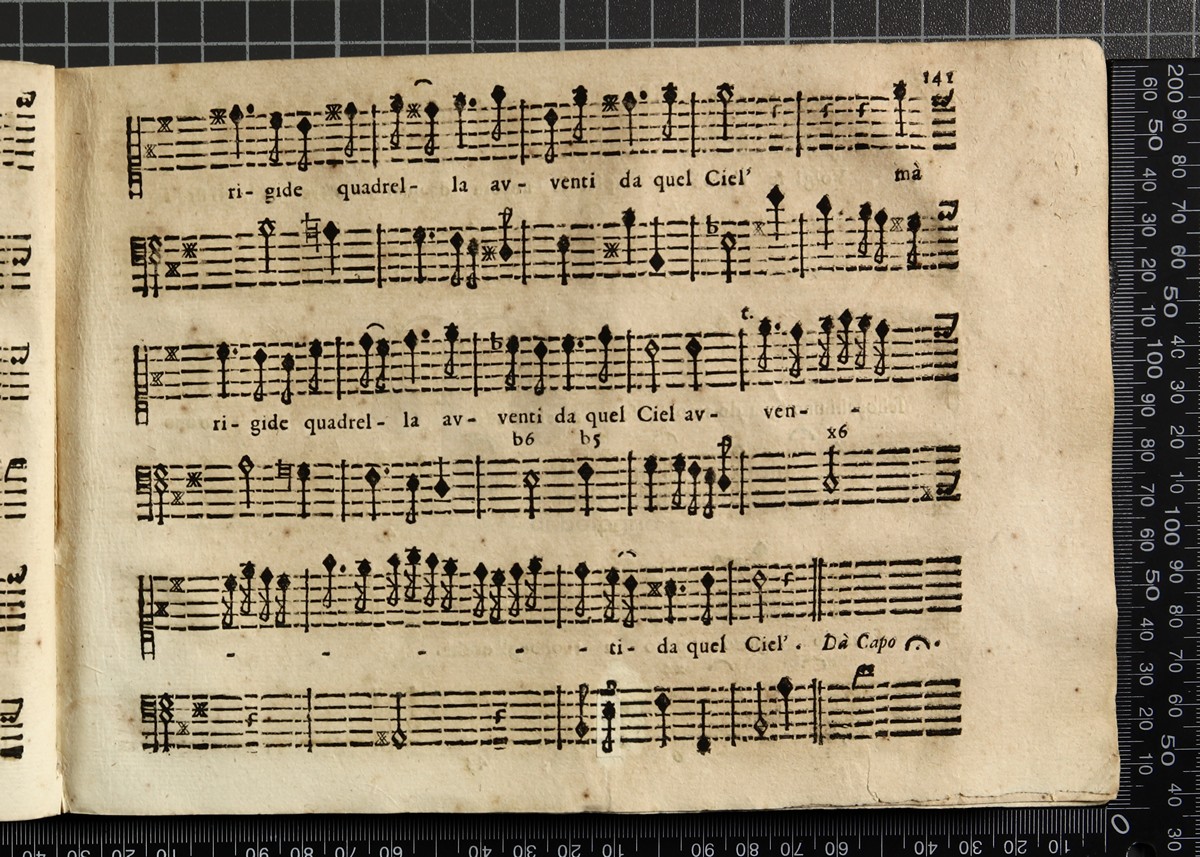 141
ri- gide quadrel- la av- venti da quel Ciel' mà
ri- gide quadrel- la av- venti da quel Ciel av- ven- -
b6 b5 x6
- - - - - ti- da quel Ciel'. Dà Capo